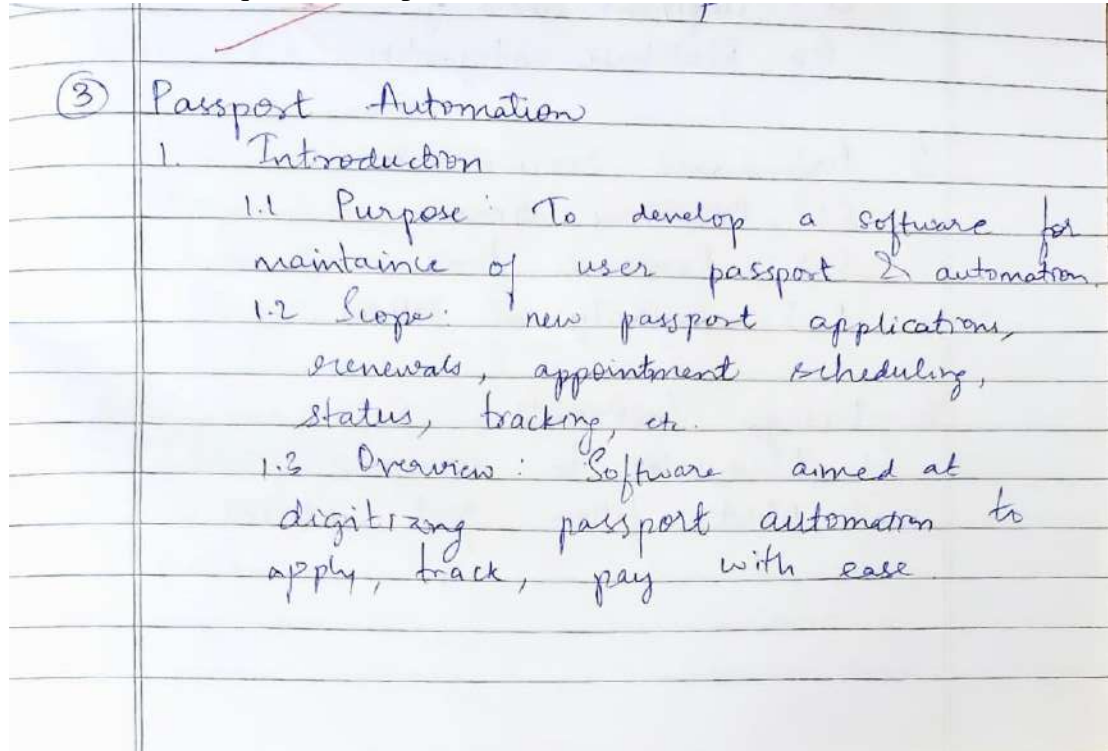 ③ Passport Automation
1. Introduction
1.1 Purpose: To develop a software for
maintaince of user passport & automation.
1.2 Scope: new passport applications,
renewals, appointment scheduling,
status, tracking, etc.
1.3 Overview: Software aimed at
digitizing passport automation to
apply, track, pay with ease.